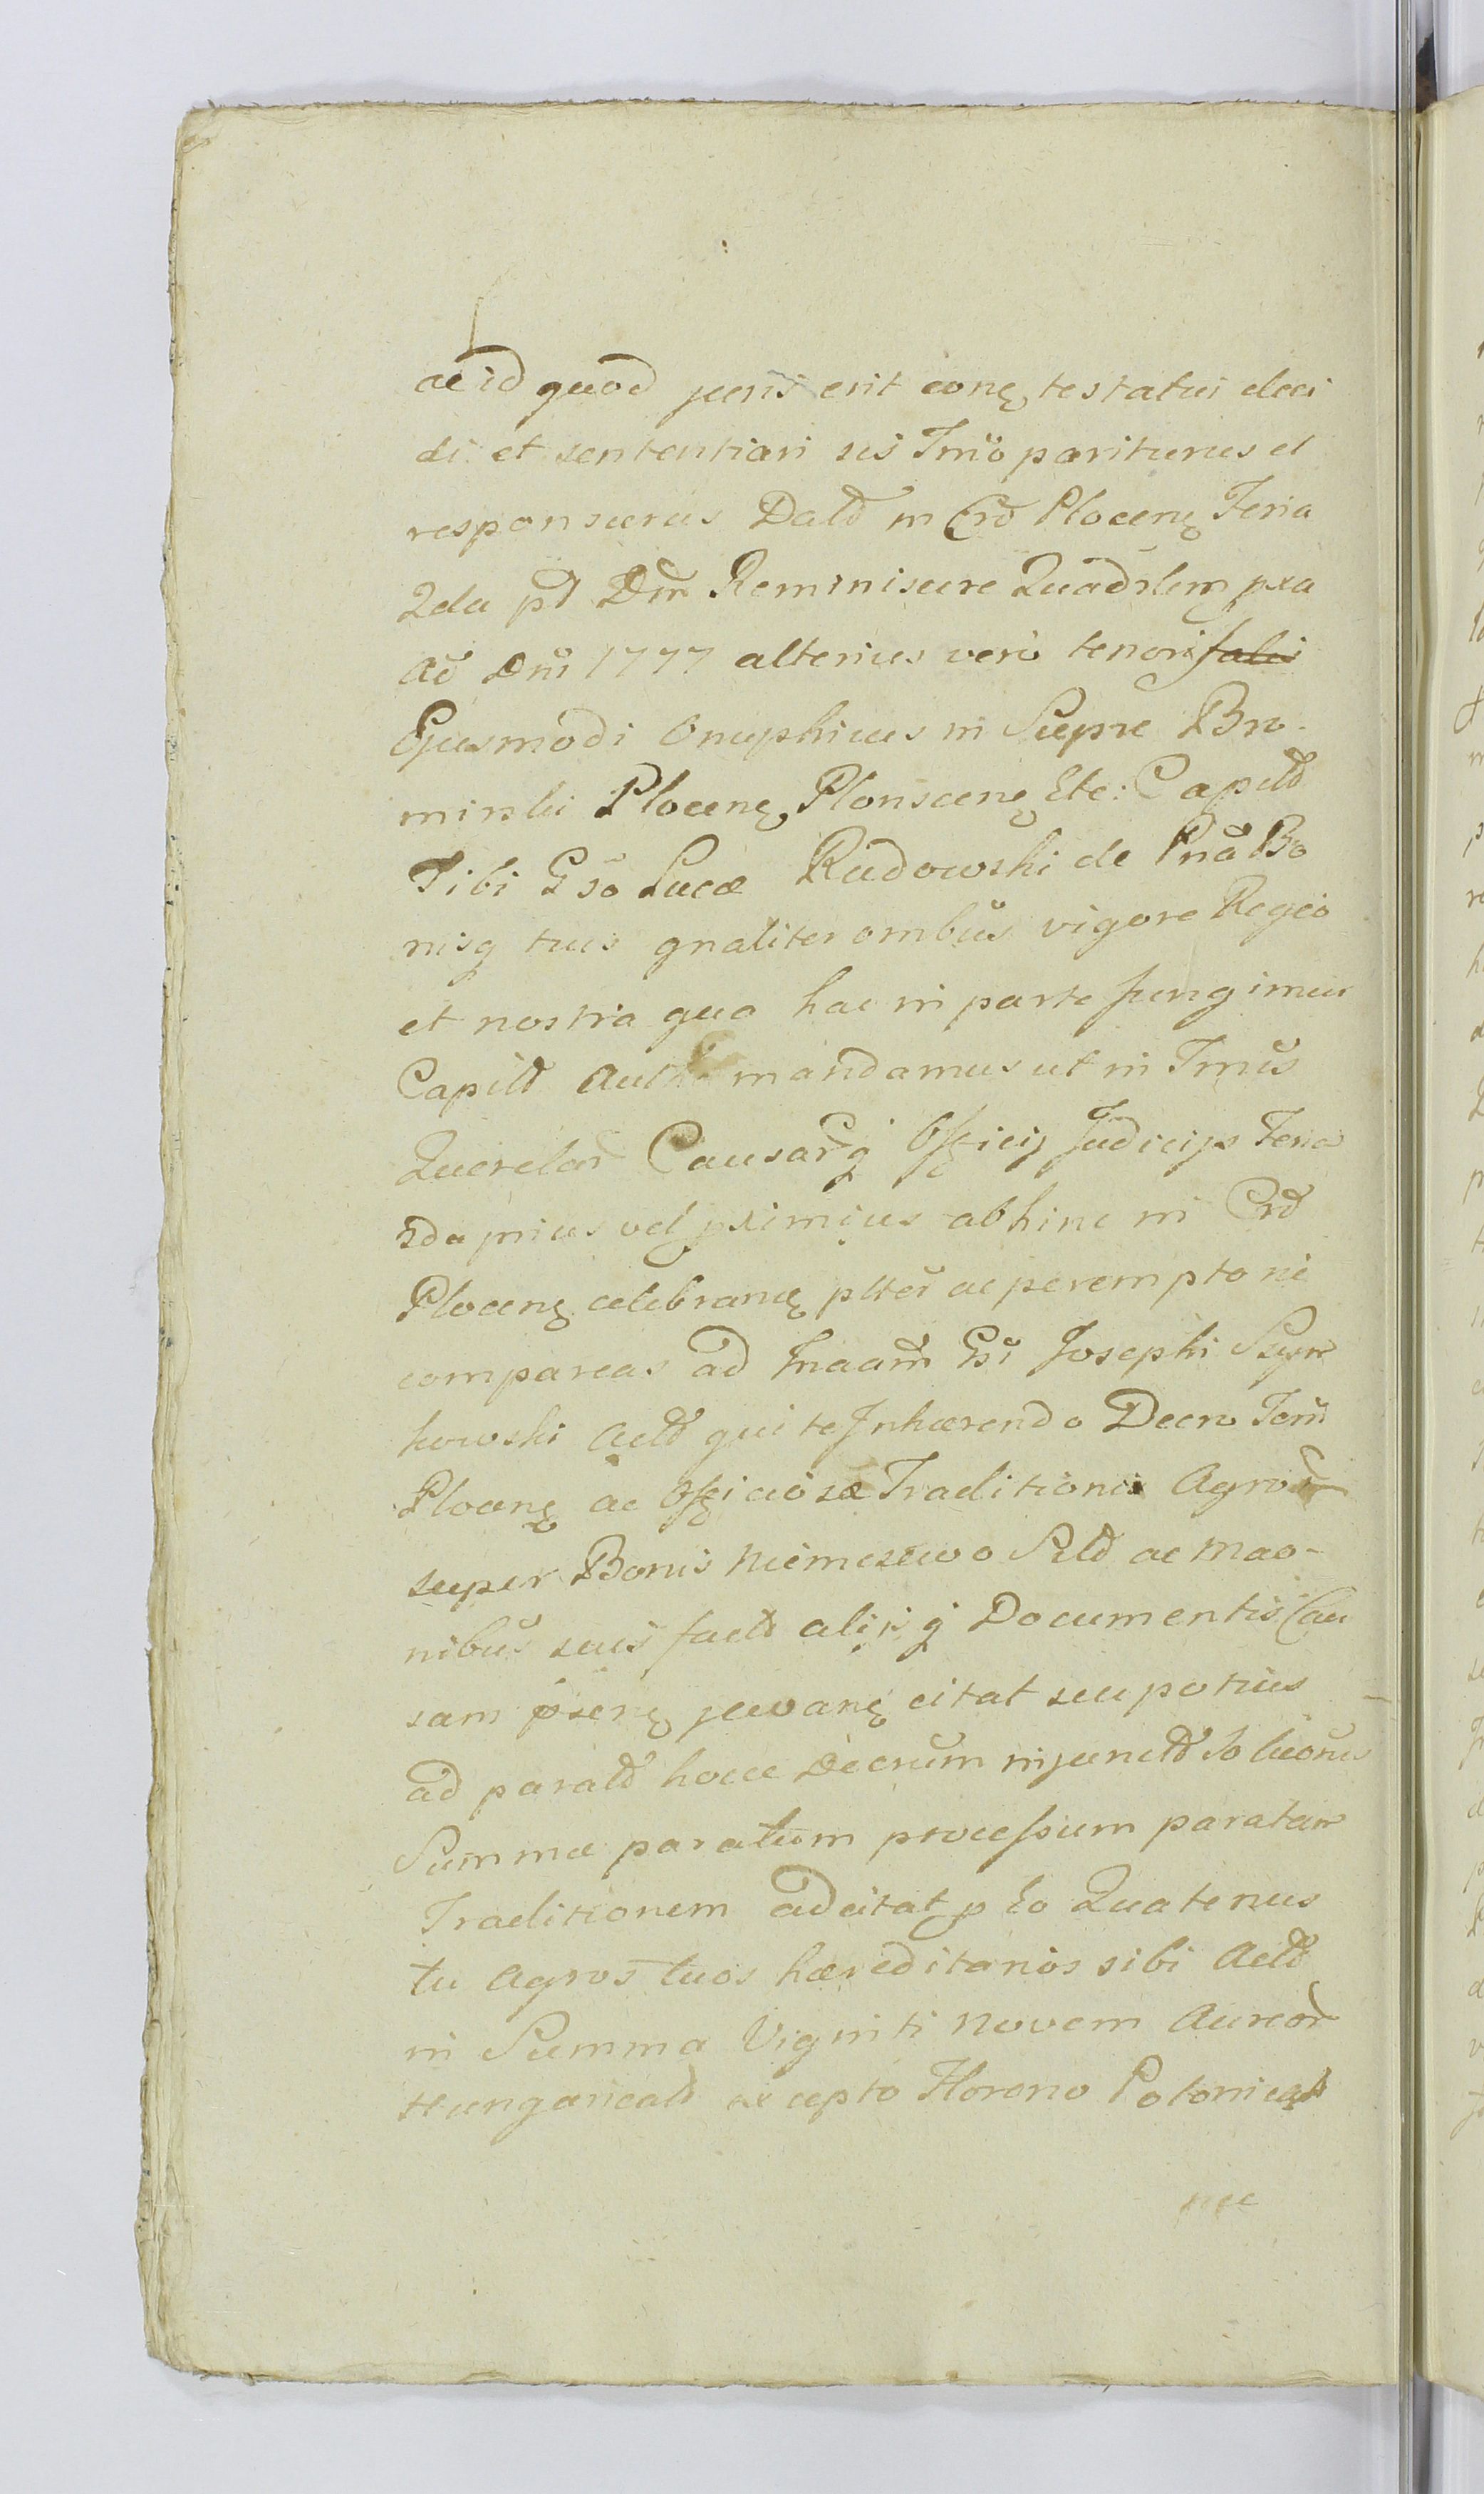 ac id quod juris erit conę testatur deci
di et sententiari sis Tmô pariturus et
responsurus Datt in Crô Plocenę Feria
2da pt Dm̄ Reminiscere Quadrlem pxa
Aō Dnī 1777 alterius verò tenoris tali
Ejusmodi Onuphrius in Supne Bro
minski Plocenę Plonscenę Etc: Capitt
Tibi Gsō Lucæ Rudowski de Pnā Bo
nisq tuis gnaliter ombūs vigore Regiô
et nostra qua hac in parte fungimur
Capitt Autte mandamus ut in Tmīs
Querelar̄ Causar̄q Officij Judicijs Feria
2da prius vel pximius abhinc in Crô
Plocenę celebranę ptter̄ ac peremptorie
compareas ad Jnaam̄ Gsī Josephi Szym
kowski Actt qui te Jnhærendo Decro Tom̄
Plocenę ac Officiosæ Traditionis Agror̄
super Bonis Niemczewo Sttt ac Mao-
nibūs suis factt alijsq Documentis Cau
sam p̄senę juvanę citat seu potius
ad paratt hocce Decrum̄ injunctt Solūonis
Summæ paratum processum paratam
Traditionem adcitat p Eo Quatenus
tu Agros tuos hæreditarios sibi Actt
in Summa Viginti Novem Aureor̄
Hungaricatt excepto Floreno Polonicat